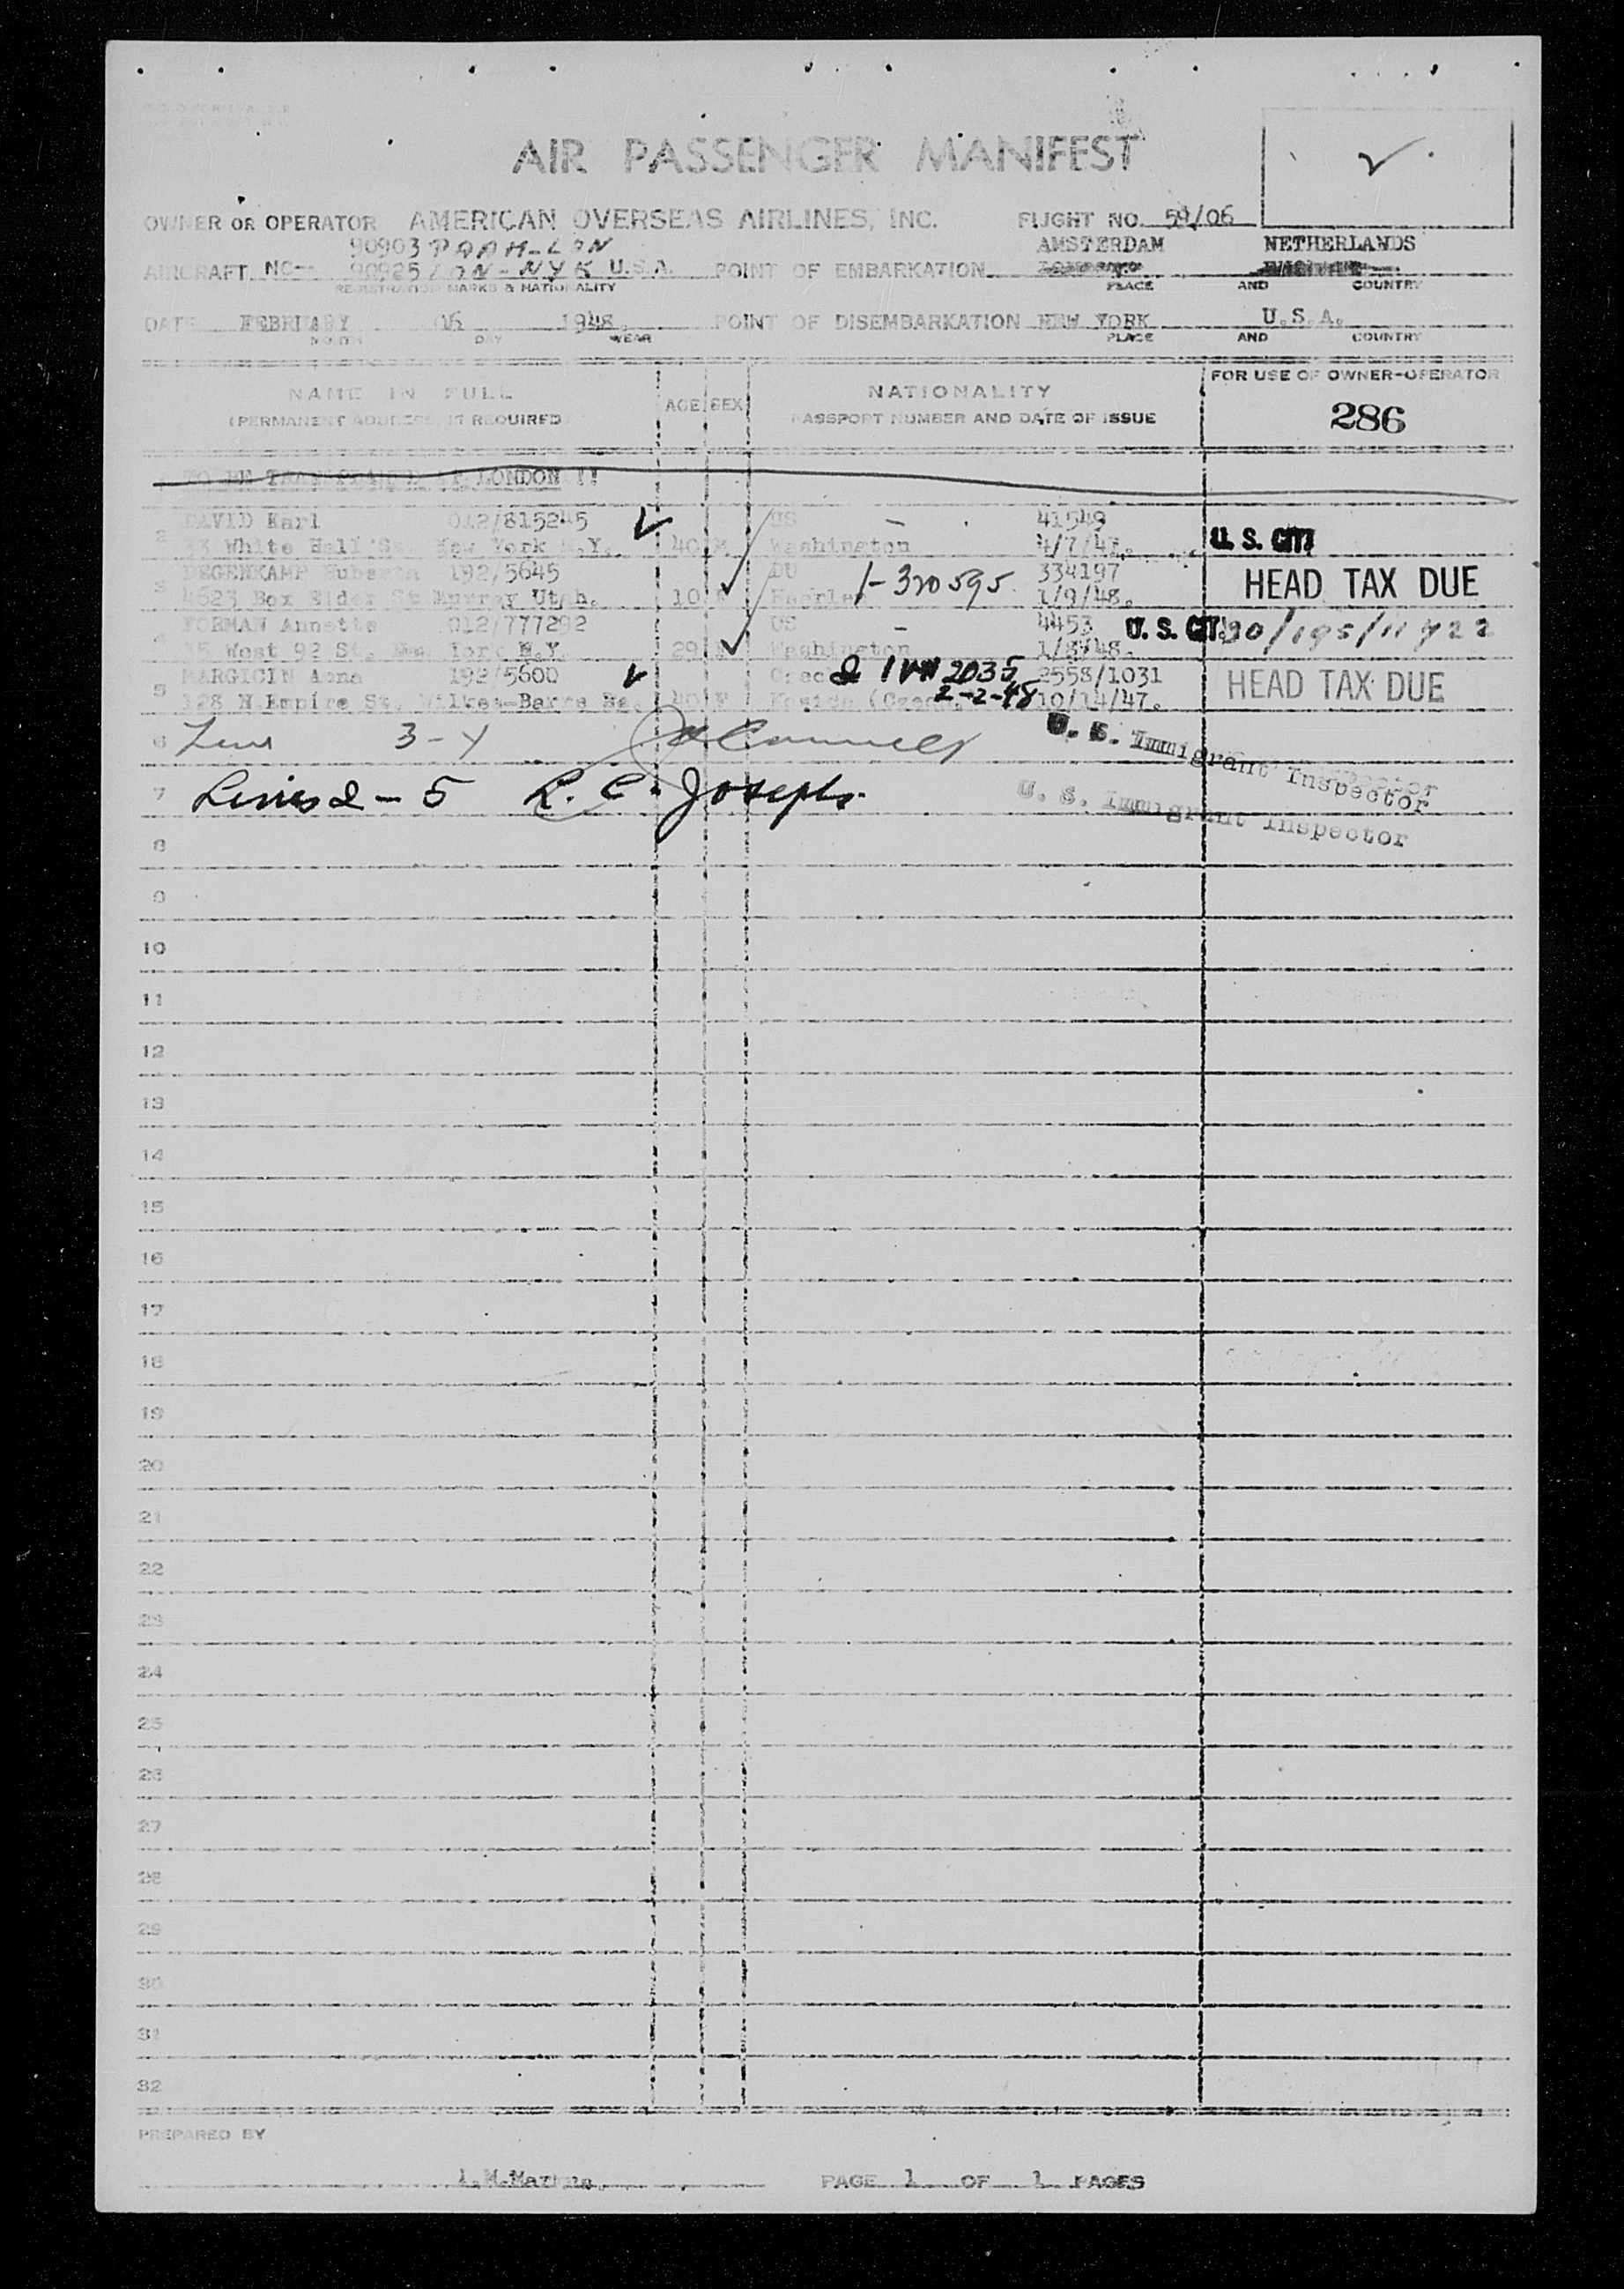 AIR PASSENGER MANIFEST
OWNER OR OPERATOR AMERICAN OVERSEAS AIRLINES, INC. FLIGHT NO. 59/06
90903 AMSTERDAM NETHERLANDS
AIRCRAFT NC— 90925/LON-NYK U.S.A. POINT OF EMBARKATION
REGISTRATION MARKS & NATIONALITY PLACE AND COUNTRY
DATE FEBRUARY 06 1948. POINT OF DISEMBARKATION NEW YORK U.S.A.
MONTH DAY YEAR PLACE AND COUNTRY
NAME IN FULL AGE SEX NATIONALITY FOR USE OF OWNER-OPERATOR
(PERMANENT ADDRESS IF REQUIRED) PASSPORT NUMBER AND DATE OF ISSUE 286
TO BE LONDON !!
2 DAVID Karl 012/815245 US – 41549
33 White Hall St. New York N.Y. 40 M Washington 4/7/47. U. S. CIT
3 DEGENKAMP Huberta 192/5645 DU 334197
4623 Box Elder St Murray Utah. 10 1-320595 1/9/48. HEAD TAX DUE
4 FORMAN Annette 012/777292 US – 4453 U. S. CIT.
West 92 St. New York N.Y. 29 F Washington 1/8/48.
5 MARGICIN Anna 192/5600 2035 2558/1031 HEAD TAX DUE
128 N Empire St. Wilkes-Barre 40 F 2-2-48 10/14/47.
6 3-4 U. S. Immigrant Inspector
7 Lines 2-5 R. C. Joseph U. S. Immigrant Inspector
8
9
10
11
12
13
14
15
16
17
18
19
20
21
22
23
24
25
26
27
28
29
30
31
32
PREPARED BY
PAGE 1 OF 1 PAGES